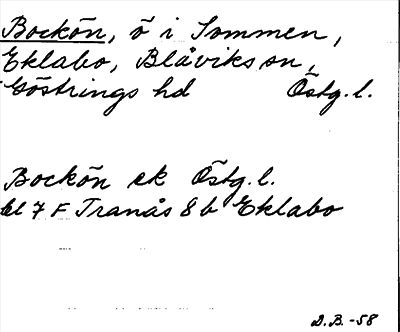 Bockön, ö i Sommen,
Eklabo, Blåviks sn,
Göstrings hd Östg. l.
Bockön ek Östg. l.
bl 7 F Tranås 8 b Eklabo
D. B. -58